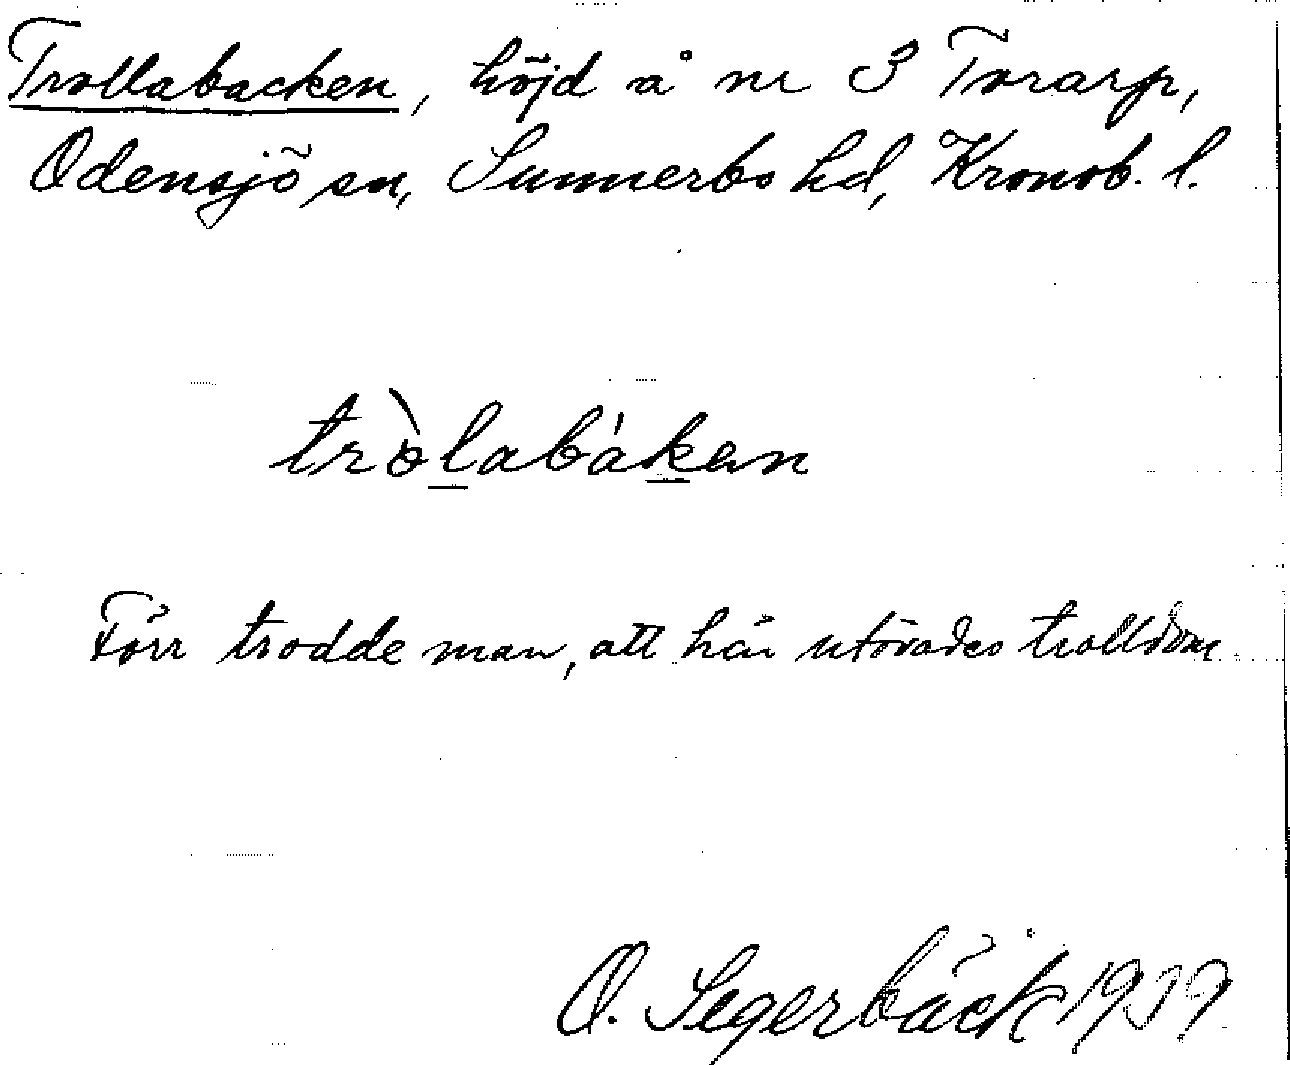 Trollabacken, höjd å nr 3 Torarp,
Odensjö sn, Sunnerbo hd, Kronob. l.
tròlabákan
Förr trodde man, att här utövades trolldom.
O. Segerbäck 1939